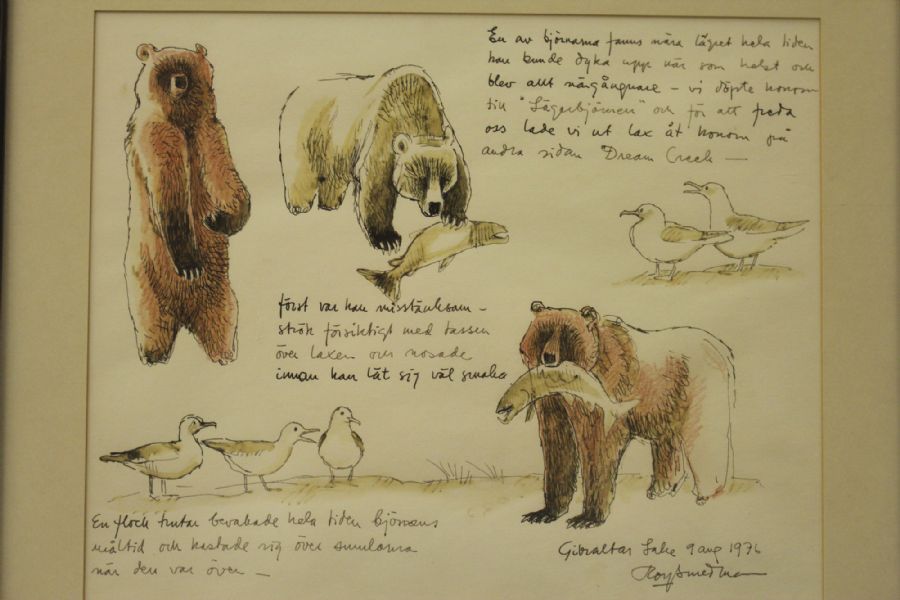 En av björnarna fanns nära lägret hela tiden
han kunde dyka upp när som helst och
blev allt närgångnare – vi döpte honom
till "Lägerbjörnen" och för att freda
oss lade vi ut lax åt honom på
andra sidan Dream Creek —
först var han misstänksam –
strök försiktigt med tassen
över laxen och nosade
innan han lät sig väl smaka
En flock trutar bevakade hela tiden björnens
måltid och kastade sig över smulorna
när den var över —
Gibraltar Lake 9 aug 1976